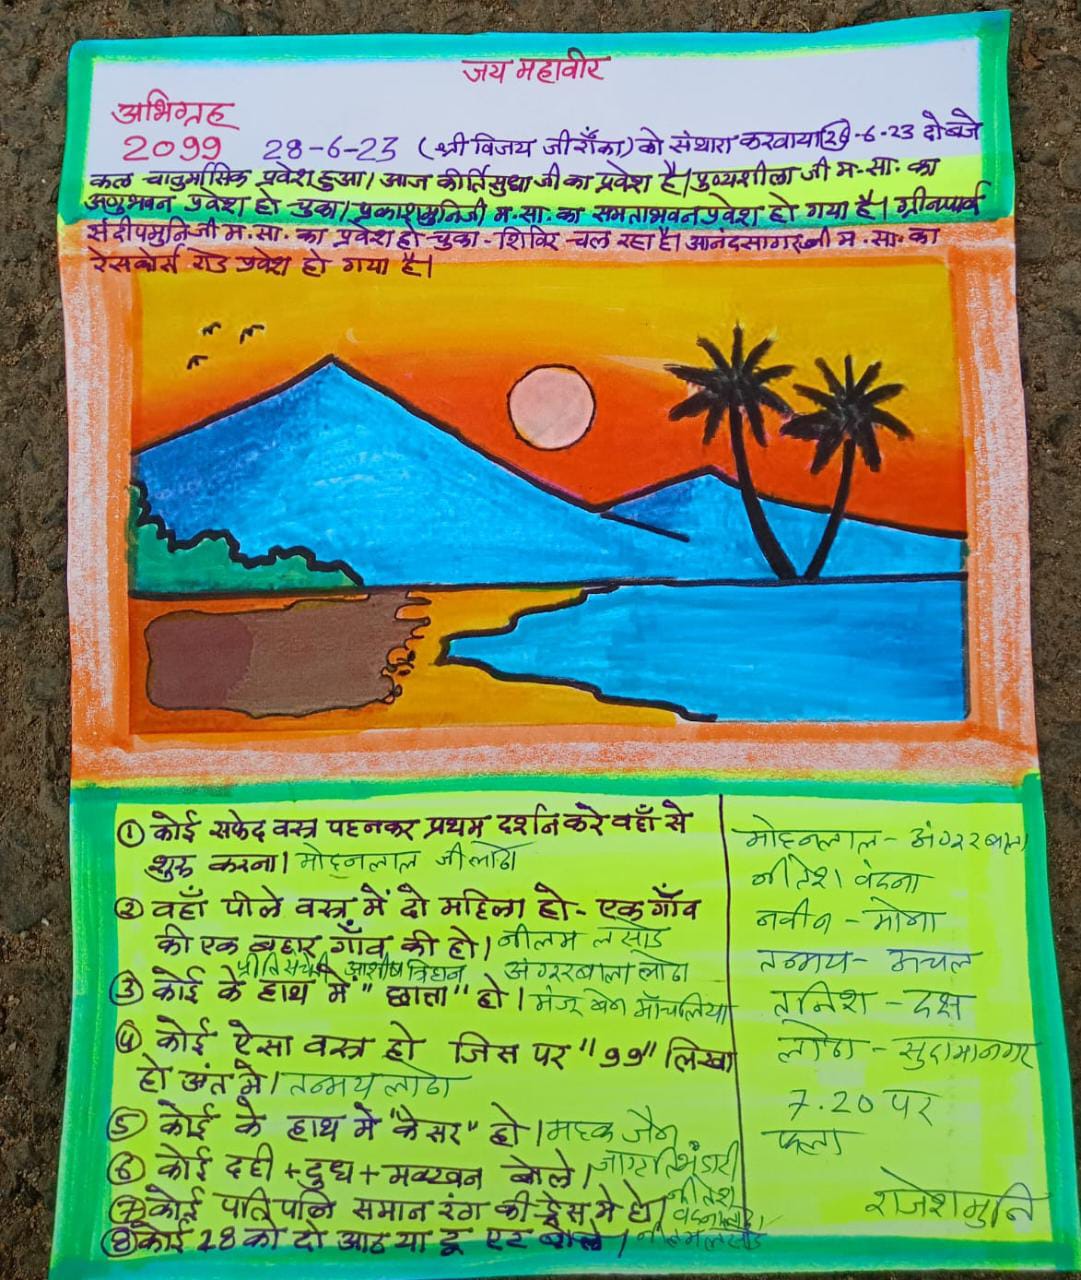 जय महावीर
अभिग्रह
2099 28-6-23 (श्री विजय जी राँका) को संथारा करवाया 28-6-23 दो बजे
कल चातुर्मासिक प्रवेश हुआ। आज कीर्तिसुधा जी का प्रवेश है। पुण्यशीला जी म.सा. का
अणुभवन प्रवेश हो चुका। प्रकाशमुनिजी म.सा. का समताभवन प्रवेश हो गया है। ग्रीनपार्क
संदीपमुनिजी म.सा. का प्रवेश हो चुका - शिविर चल रहा है। आनंदसागरजी म.सा. का
रेसकोर्स रोड प्रवेश हो गया है।
① कोई सफेद वस्त्र पहनकर प्रथम दर्शन करे वहाँ से
शुरू करना। मोहनलाल जी लोढा
② वहाँ पीले वस्त्र में दो महिला हो - एक गाँव
की एक बहार गाँव की हो। नीलम लसोड
प्रीति आशीष अंगूरबाला लोढा
③ कोई के हाथ में "छाता" हो।
④ कोई ऐसा वस्त्र हो जिस पर "99" लिखा
हो अंत में। तन्मय लोढा
⑤ कोई के हाथ में "केसर" हो। महक जैन
⑥ कोई दही + दुध + मक्खन बोले। जागृति भंडारी
⑦ कोई पति पत्नि समान रंग की ड्रेस मे हो। नीतेश
वंदना लोढा
⑧ कोई 28 को दो आठ या टू एट बोले। नीलम लसोड
मोहनलाल - अंगूरबाला
नीतेश वंदना
नवीन - मोना
तन्मय - अचल
तनिश - दक्ष
लोढा - सुदामानगर
7.20 पर
फला
राजेशमुनि